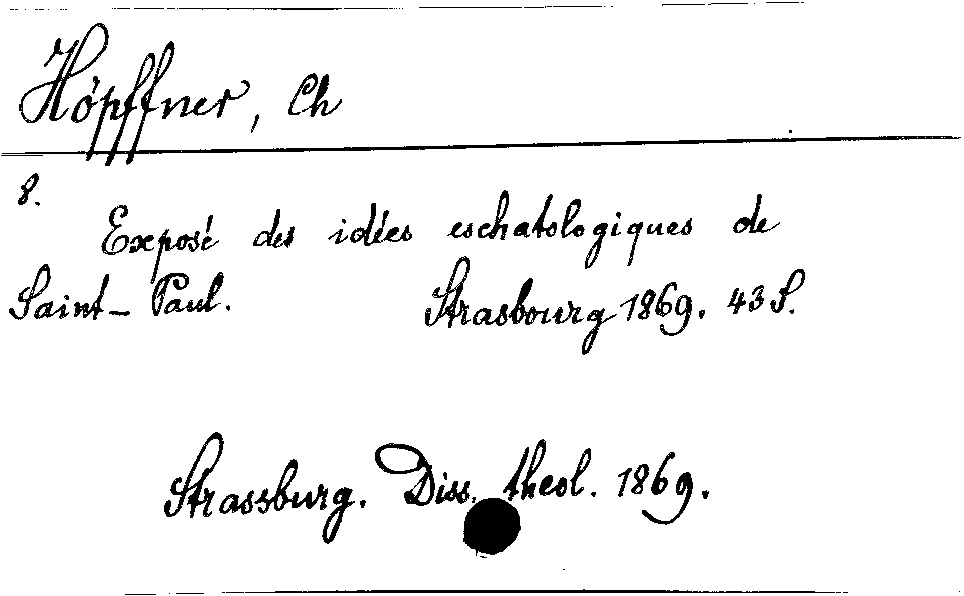 Höpffner, Ch
8.
Exposé des idées eschatologiques de
Saint-Paul. Strasbourg 1869. 43 S.
Strassburg. Diss. theol. 1869.